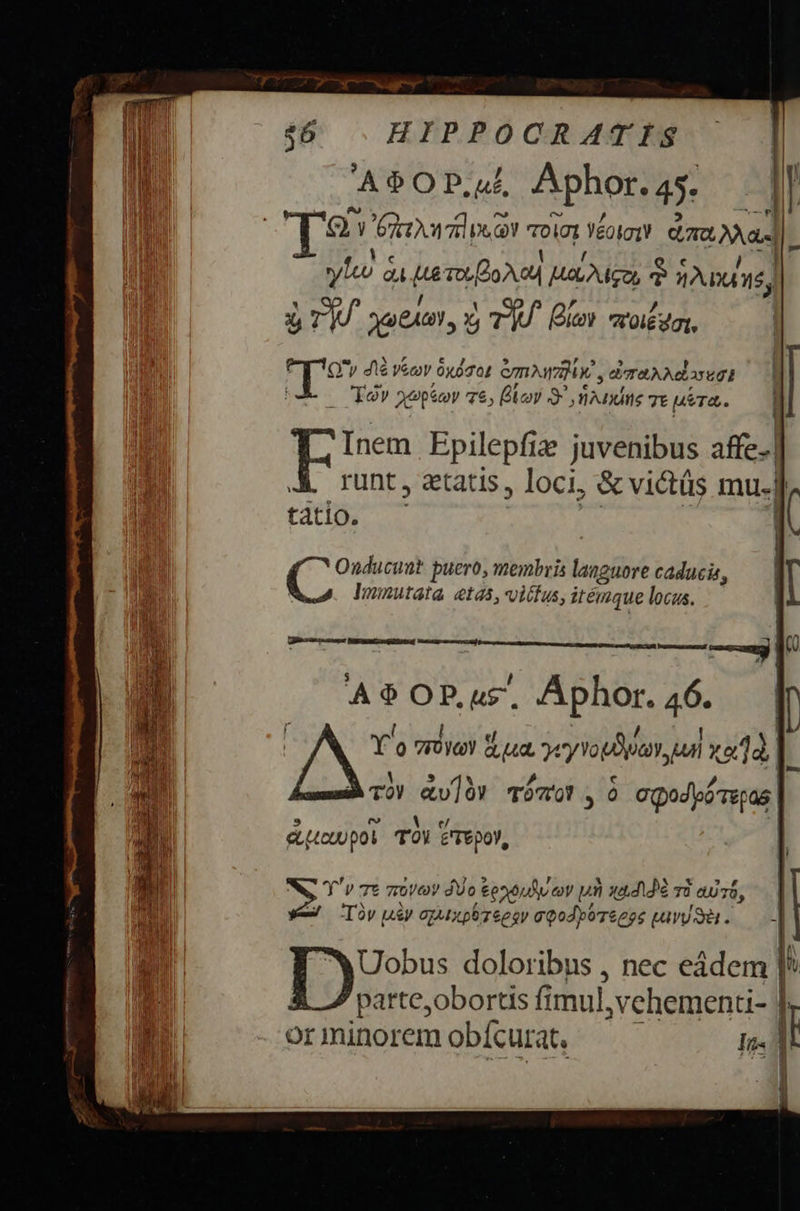 56 HIPPOCRATIS
ἈΦΟΡ. μέ. Aphor. 45.
ΤΩν ἐπιληπτικῶν τοῖσι νέοισιν ἀπαλλα-
γὴν αἱ μεταβολαὶ μάλιστα τῆς ἡλικίης,
καὶ τῶν χωρίων, καὶ τῶν βίων ποιέουσι.
ΤΩν δὲ νέων ὁκόσοι ἐπιληπτικ', ἀπαλλάσσουσι
Τῶν χωρίων τε, βίων θ', ἡλικίης τε μέτα.
FInem Epilepsiæ juvenibus affe-
runt, ætatis, loci, & victûs mu-
tatio.
COnducunt puero, membris languore caducis,
Immutata ætas, victus, itémque locus.
ἈΦΟΡ. μς'. Aphor. 46.
ΔΥ'ο πόνων ἅμα γεγνομένων, μὴ κατὰ
τὸν αὐτὸν τόπον, ὁ σφοδρότερος
ἀμαυροῖ τὸν ἕτερον,
ΝΥ'ν τε πόνων δύο ἐρχομένων μὴ καδδὲ τὸ αὐτό,
Τὸν μὲν σμικρότερον σφοδρότερος μινύθει.
DUobus doloribus, nec eâdem
parte, obortis simul, vehementi-
or minorem obscurat.
In-